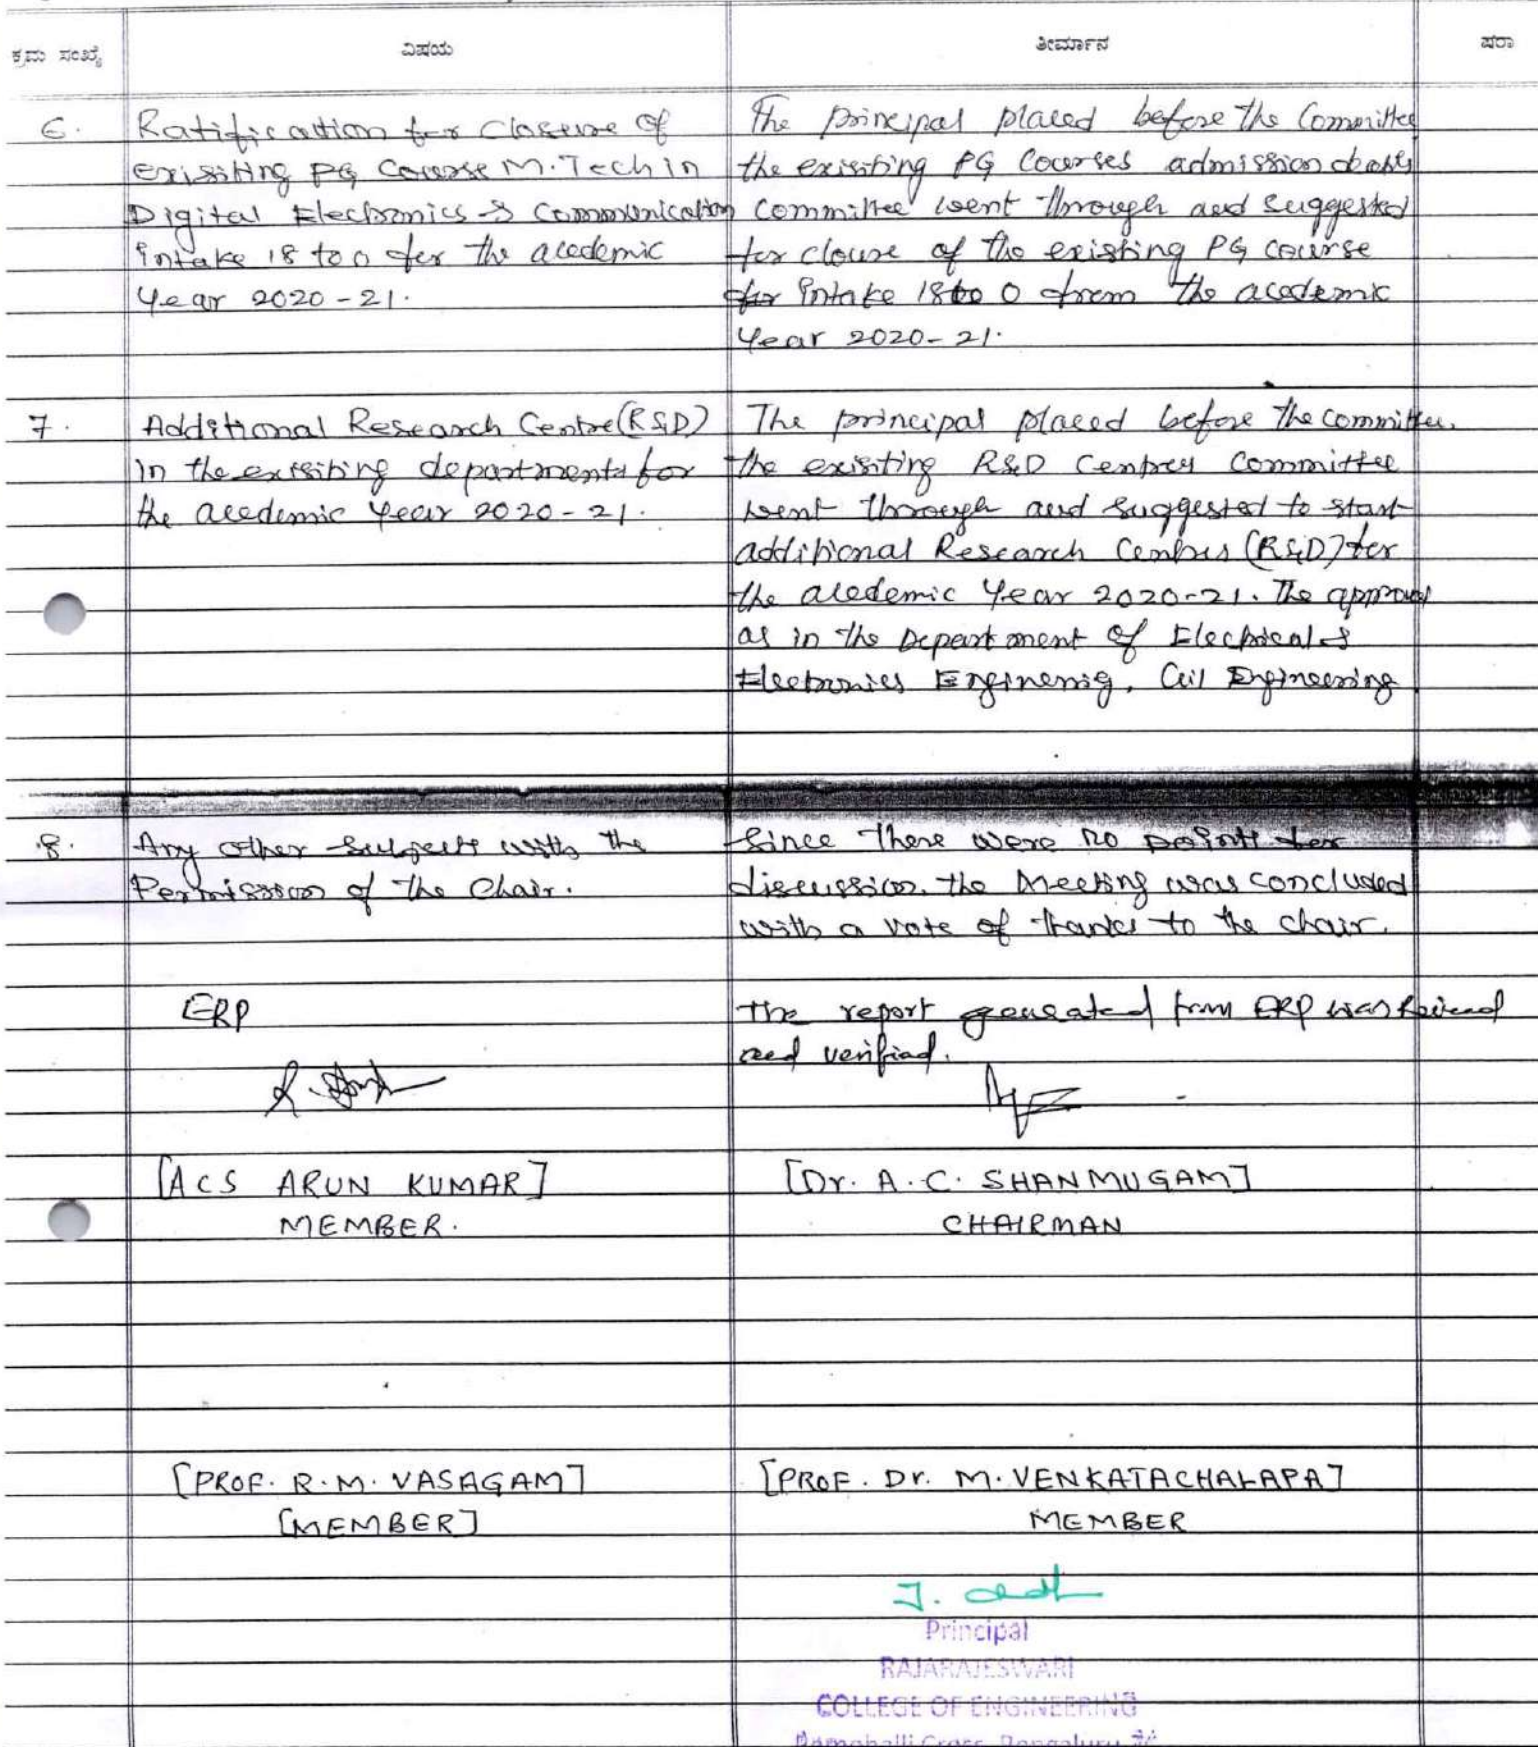 ಕ್ರಮ ಸಂಖ್ಯೆ ವಿಷಯ ತೀರ್ಮಾನ ಷರಾ
6. Ratification for Closure of
exisiting PG Course M.Tech in
Digital Electronics & Communication
intake 18 to 0 for the acedemic
Year 2020-21.
The principal placed before the Committee
the exisiting PG Courses admission
Committee went through and suggested
for clouse of the existing PG course
for intake 18 to 0 from the acedemic
Year 2020-21.
7. Additional Research Centre (R&D)
in the exisiting departments for
the acedemic year 2020-21.
The principal placed before the committee.
the exisiting R&D Centres Committee
went through and suggested to start
additional Research Centres (R&D) for
the acedemic Year 2020-21. The approval
as in the Department of Electrical &
Electronics Enginering, Civil Engineering
8. Any other subjects with the
Permission of the Chair.
Since there were no points for
discussion. the Meeting was concluded
with a vote of thanks to the chair.
ERP
The report generated from ERP was
and verified.
[ACS ARUN KUMAR]
MEMBER.
[Dr. A.C. SHANMUGAM]
CHAIRMAN
[PROF. R.M. VASAGAM]
[MEMBER]
[PROF. Dr. M. VENKATACHALAPA]
MEMBER
Principal
RAJARAJESWARI
COLLEGE OF ENGINEERING
Ramohalli Cross, Bengaluru-74